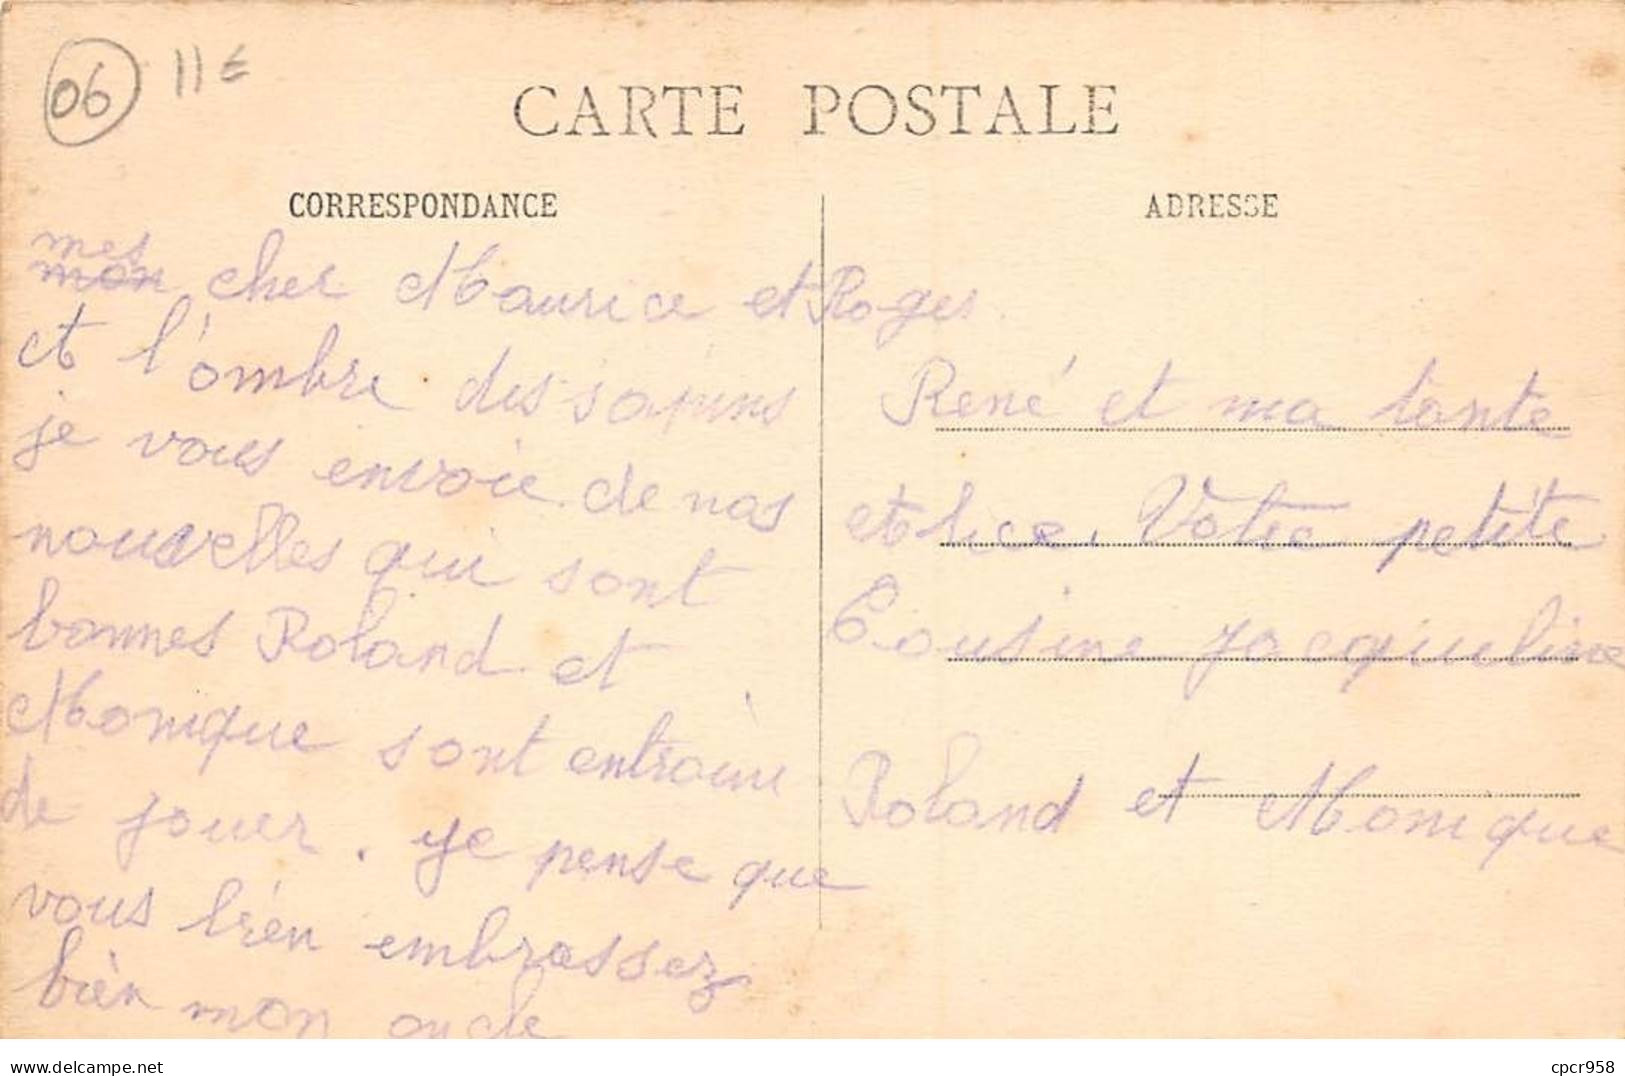 06 11€
CARTE POSTALE
CORRESPONDANCE
ADRESSE
mes
mon cher Maurice et Roger
et l'ombre des sapins
je vous envoie de nos
nouvelles qui sont
bonnes Roland et
Monique sont entraine
de jouer. je pense que
vous bien embrassez
bien mon oncle
René et ma tante
Alice. Votre petite
Cousine Jacquline
Roland et Monique
delcampe.net
cpcr958